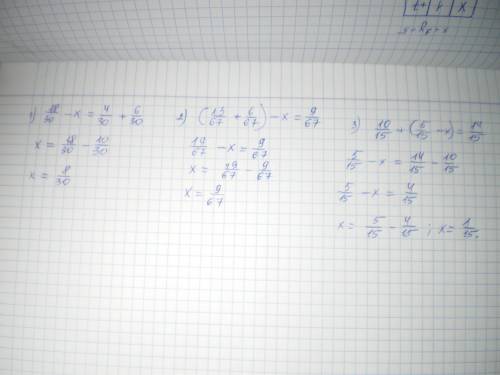 1) 18/30 - x = 4/30 + 6/30
x = 18/30 - 10/30
x = 8/30
2) (13/67 + 6/67) - x = 9/67
19/67 - x = 9/67
x = 19/67 - 9/67
x = 9/67
3) 10/15 + (5/15 - x) = 14/15
5/15 - x = 14/15 - 10/15
5/15 - x = 4/15
x = 5/15 - 4/15 ; x = 1/15.